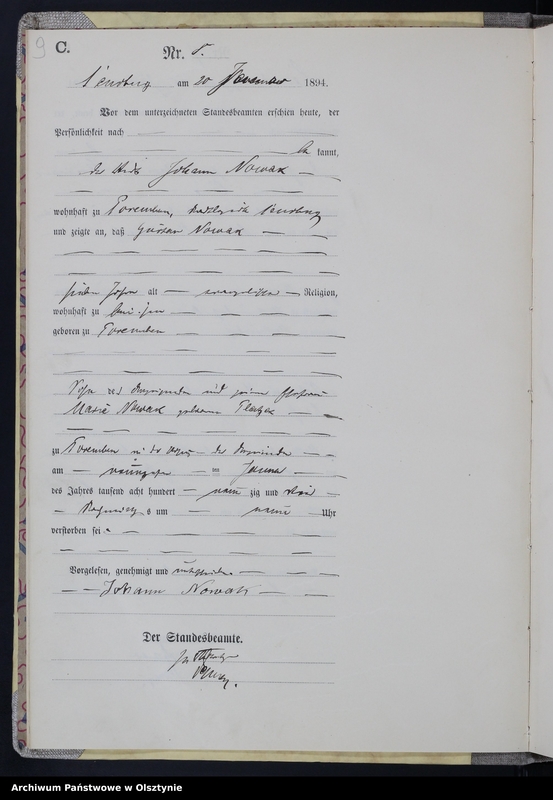 9 C.
Nr. 8.
am 20 1894.
Vor dem unterzeichneten Standesbeamten erschien heute, der
Persönlichkeit nach
kannt,
der Johann Nowak
wohnhaft zu
und zeigte an, daß Gustav Nowak
sieben Jahre alt evangelischer Religion,
wohnhaft zu bei ihm
geboren zu
Sohn des Anzeigenden und seiner Ehefrau
Maria Nowak geborene
zu in der Wohnung des Anzeigenden
am neunzehn ten Januar
des Jahres tausend acht hundert neun zig und vier
Nachmittags um neun Uhr
verstorben sei.
Vorgelesen, genehmigt und unterschrieben
Johann Nowak
Der Standesbeamte.
Archiwum Państwowe w Olsztynie